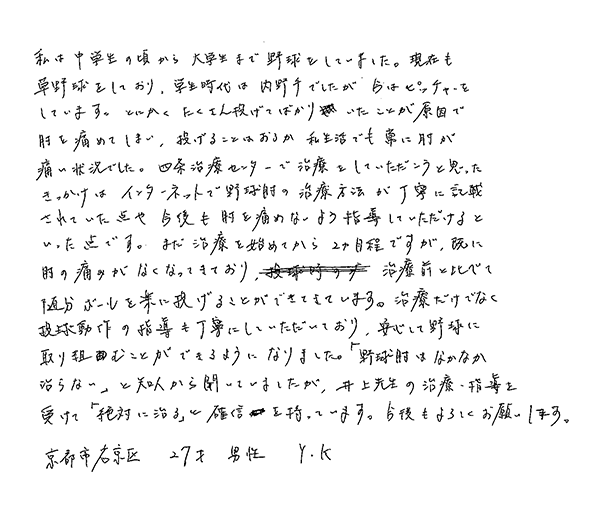 私は中学生の頃から大学生まで野球をしていました。現在も
草野球をしており、学生時代は内野手でしたが今はピッチャーを
しています。とにかくたくさん投げてばかりいたことが原因で
肘を痛めてしまい、投げることはおろか私生活でも常に肘が
痛い状況でした。四条治療センターで治療をしていただこうと思った
きっかけはインターネットで野球肘の治療方法が丁寧に記載
されていた点や今後も肘を痛めないよう指導していただけると
いった点です。まだ治療を始めてから2ヶ月程ですが、既に
肘の痛みがなくなってきており、治療前と比べて
随分ボールを楽に投げることができてきています。治療だけでなく
投球動作の指導も丁寧にしていただいており、安心して野球に
取り組むことができるようになりました。「野球肘はなかなか
治らない」と知人から聞いていましたが、井上先生の治療・指導を
受けて「絶対に治る」と確信を持っています。今後もよろしくお願いします。
京都市右京区 27才 男性 Y.K